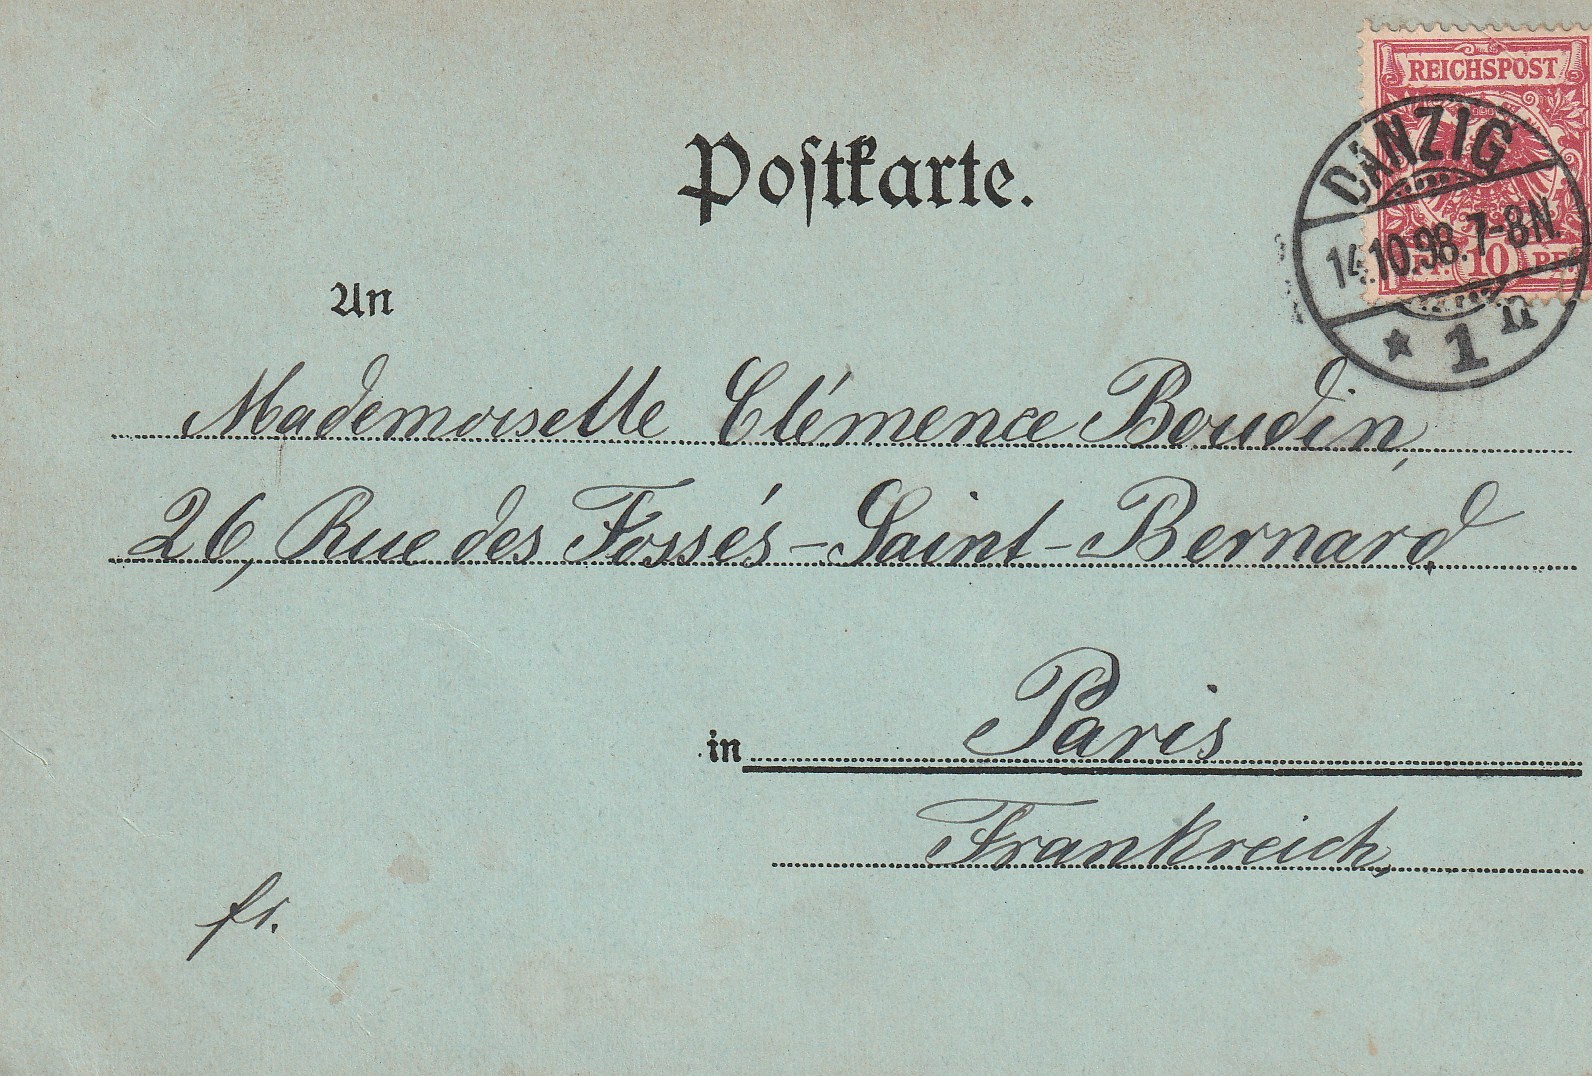 REICHSPOST
PF. 10 PF.
DANZIG
14.10.98.7-8N.
* 1 n
Postkarte.
An
Mademoiselle Clémence Boudin,
26, Rue des Fossés-Saint-Bernard,
in Paris
Frankreich,
fr.